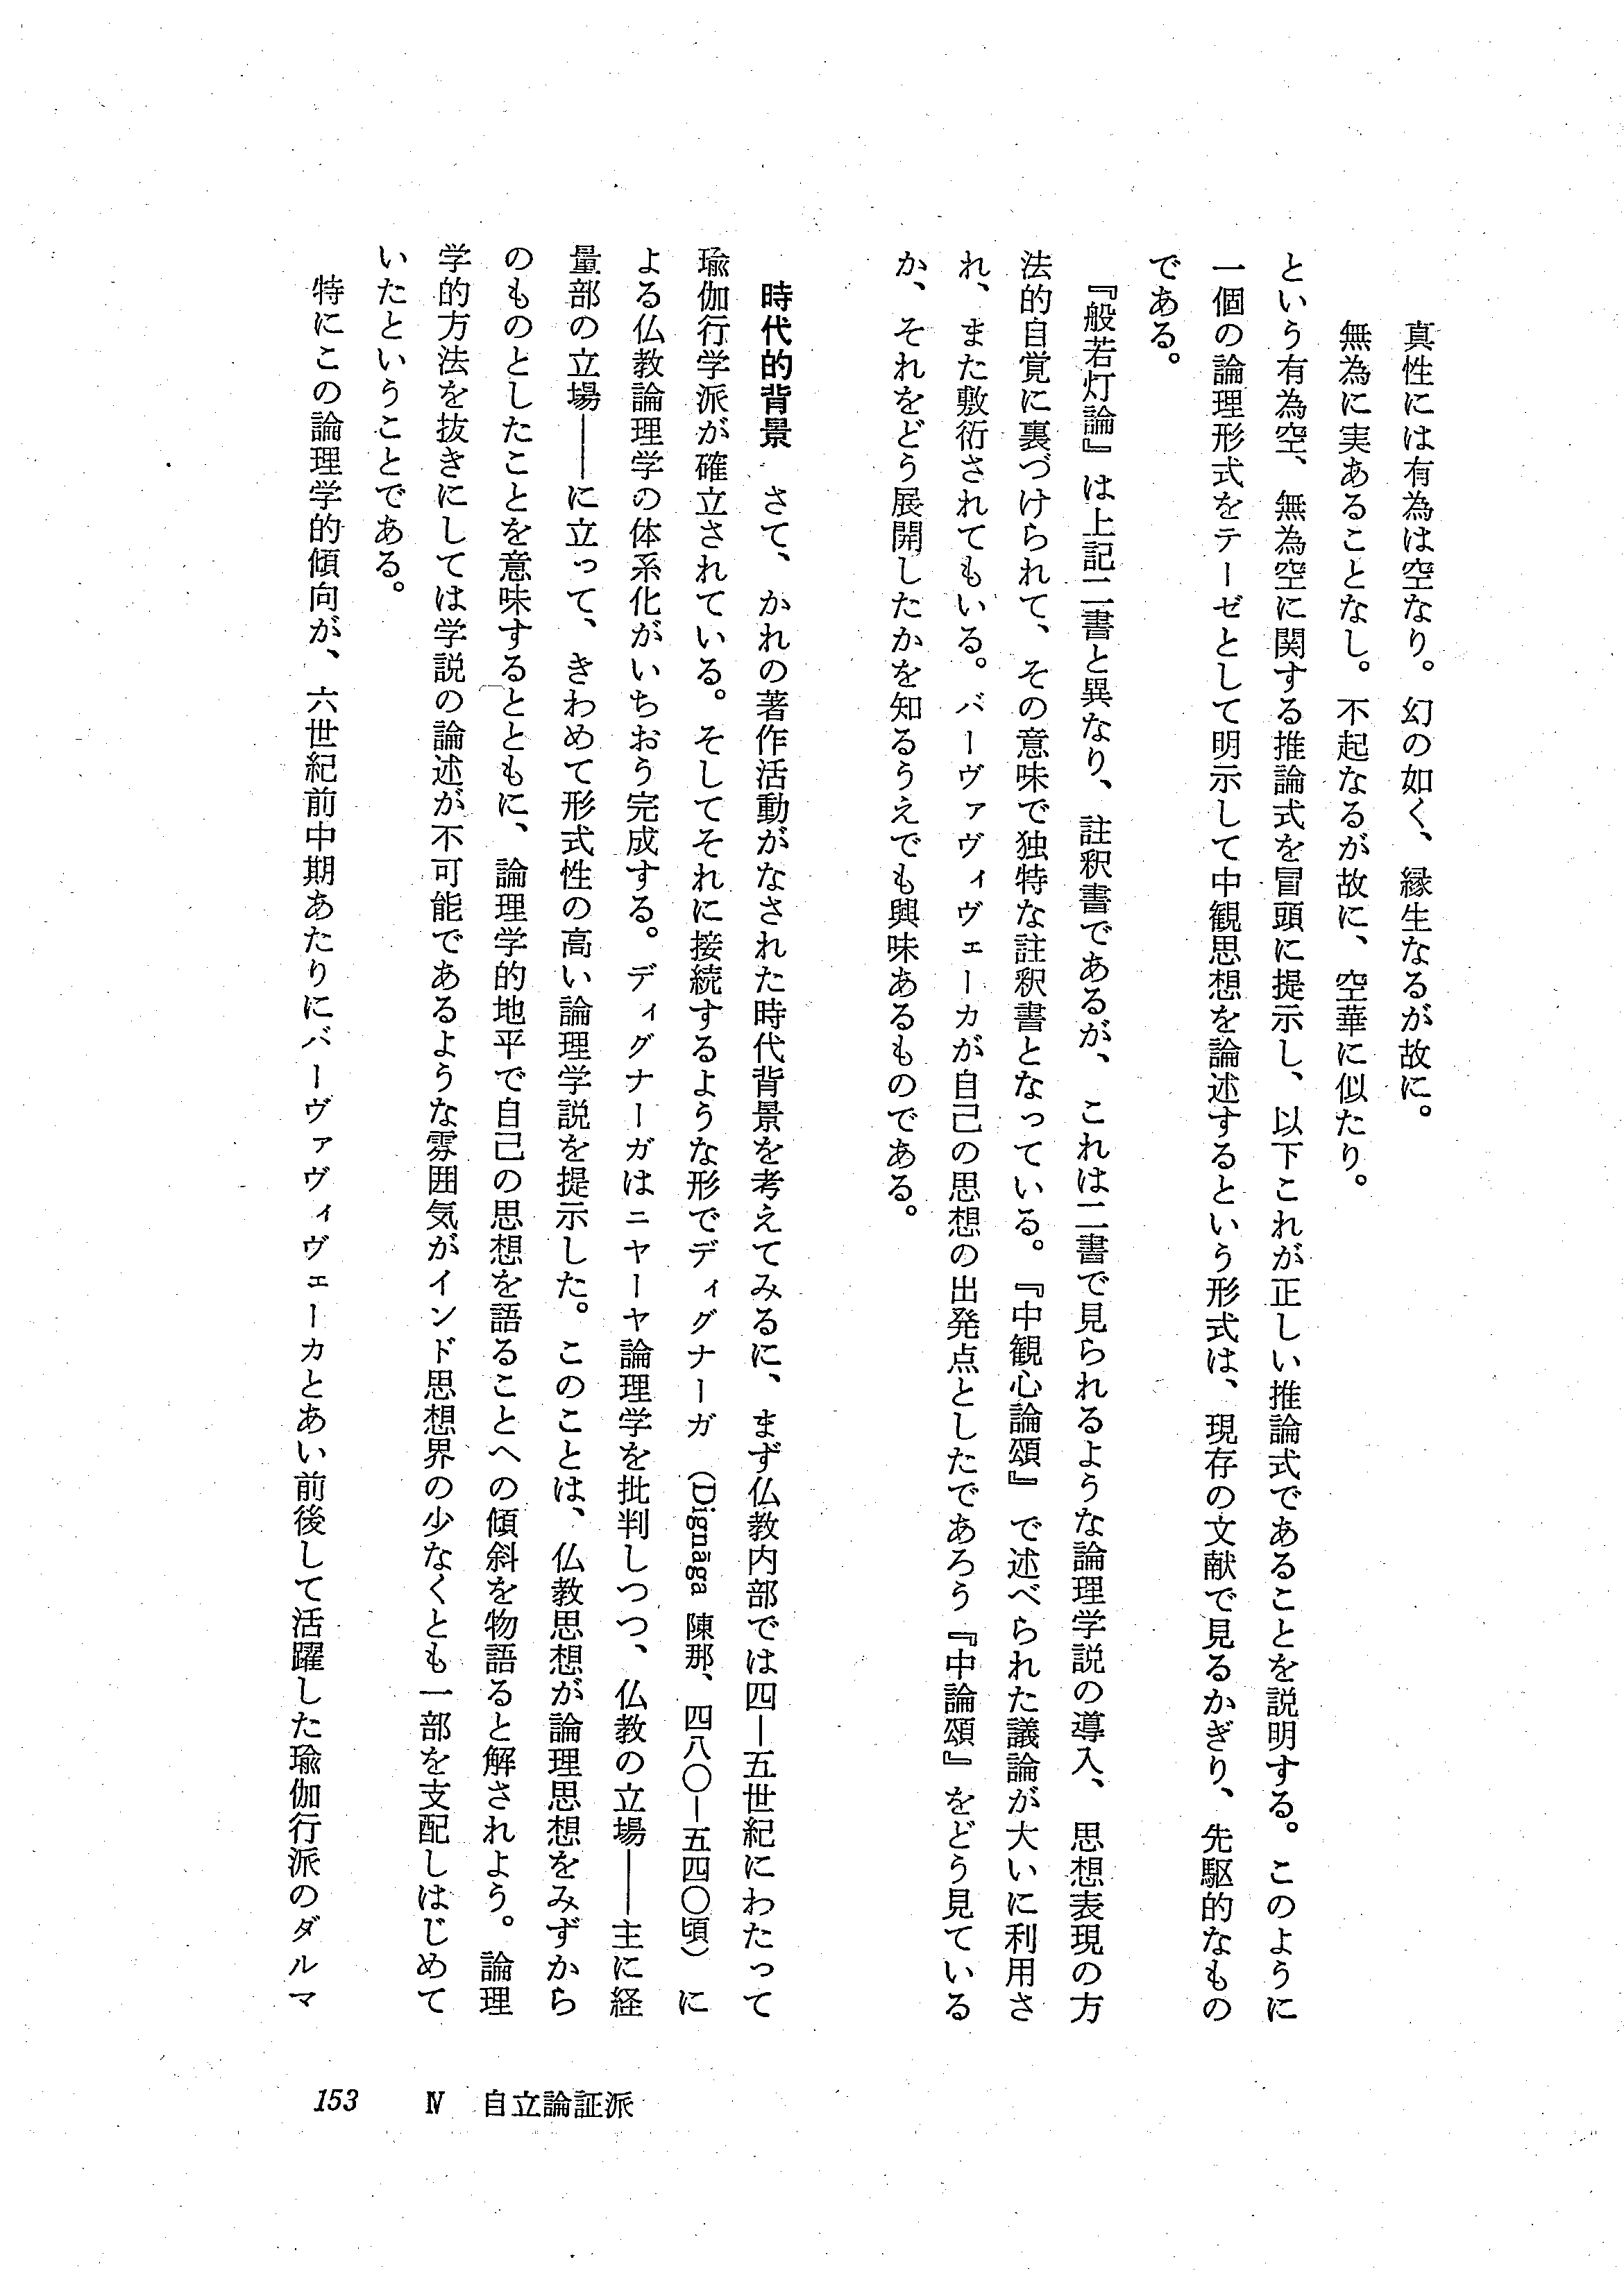 真性には有為は空なり。幻の如く、縁生なるが故に。
無為に実あることなし。不起なるが故に、空華に似たり。
という有為空、無為空に関する推論式を冒頭に提示し、以下これが正しい推論式であることを説明する。このように
一個の論理形式をテーゼとして明示して中観思想を論述するという形式は、現存の文献で見るかぎり、先駆的なもの
である。
『般若灯論』は上記二書と異なり、註釈書であるが、これは二書で見られるような論理学説の導入、思想表現の方
法的自覚に裏づけられて、その意味で独特な註釈書となっている。『中観心論頌』で述べられた議論が大いに利用さ
れ、また敷衍されてもいる。バーヴァヴィヴェーカが自己の思想の出発点としたであろう『中論頌』をどう見ている
か、それをどう展開したかを知るうえでも興味あるものである。
時代的背景 さて、かれの著作活動がなされた時代背景を考えてみるに、まず仏教内部では四―五世紀にわたって
瑜伽行学派が確立されている。そしてそれに接続するような形でディグナーガ（Dignāga 陳那、四八〇―五四〇頃）に
よる仏教論理学の体系化がいちおう完成する。ディグナーガはニヤーヤ論理学を批判しつつ、仏教の立場――主に経
量部の立場――に立って、きわめて形式性の高い論理学説を提示した。このことは、仏教思想が論理思想をみずから
のものとしたことを意味するとともに、論理学的地平で自己の思想を語ることへの傾斜を物語ると解されよう。論理
学的方法を抜きにしては学説の論述が不可能であるような雰囲気がインド思想界の少なくとも一部を支配しはじめて
いたということである。
特にこの論理学的傾向が、六世紀前中期あたりにバーヴァヴィヴェーカとあい前後して活躍した瑜伽行派のダルマ
153 Ⅳ 自立論証派